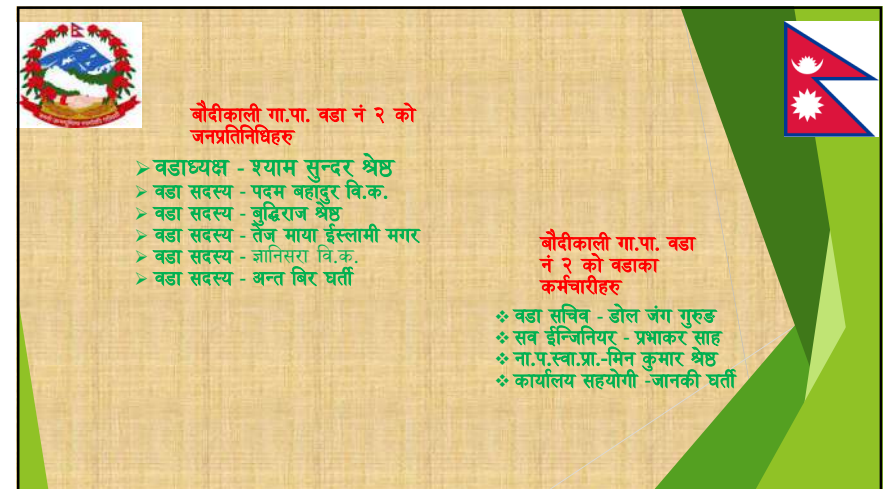 बौदीकाली गा.पा. वडा नं २ को
जनप्रतिनिधिहरु
वडाध्यक्ष - श्याम सुन्दर श्रेष्ठ
वडा सदस्य - पदम बहादुर वि.क.
वडा सदस्य - बुद्धिराज श्रेष्ठ
वडा सदस्य - तेज माया ईस्लामी मगर
वडा सदस्य - ज्ञानिसरा वि.क.
वडा सदस्य - अन्त बिर घर्ती
बौदीकाली गा.पा. वडा
नं २ को वडाका
कर्मचारीहरु
वडा सचिव - डोल जंग गुरुङ
सव ईन्जिनियर - प्रभाकर साह
ना.प.स्वा.प्रा.-मिन कुमार श्रेष्ठ
कार्यालय सहयोगी -जानकी घर्ती